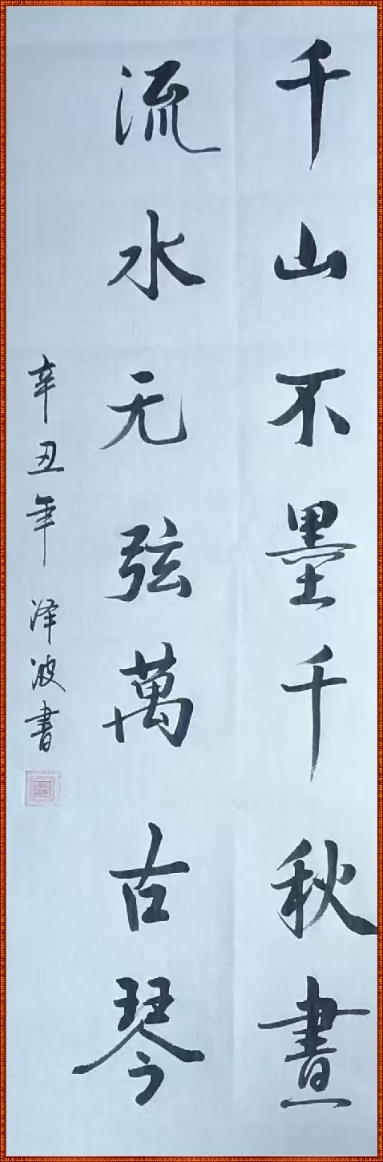 千山不墨千秋晝
流水无弦萬古琴
辛丑年 泽波書